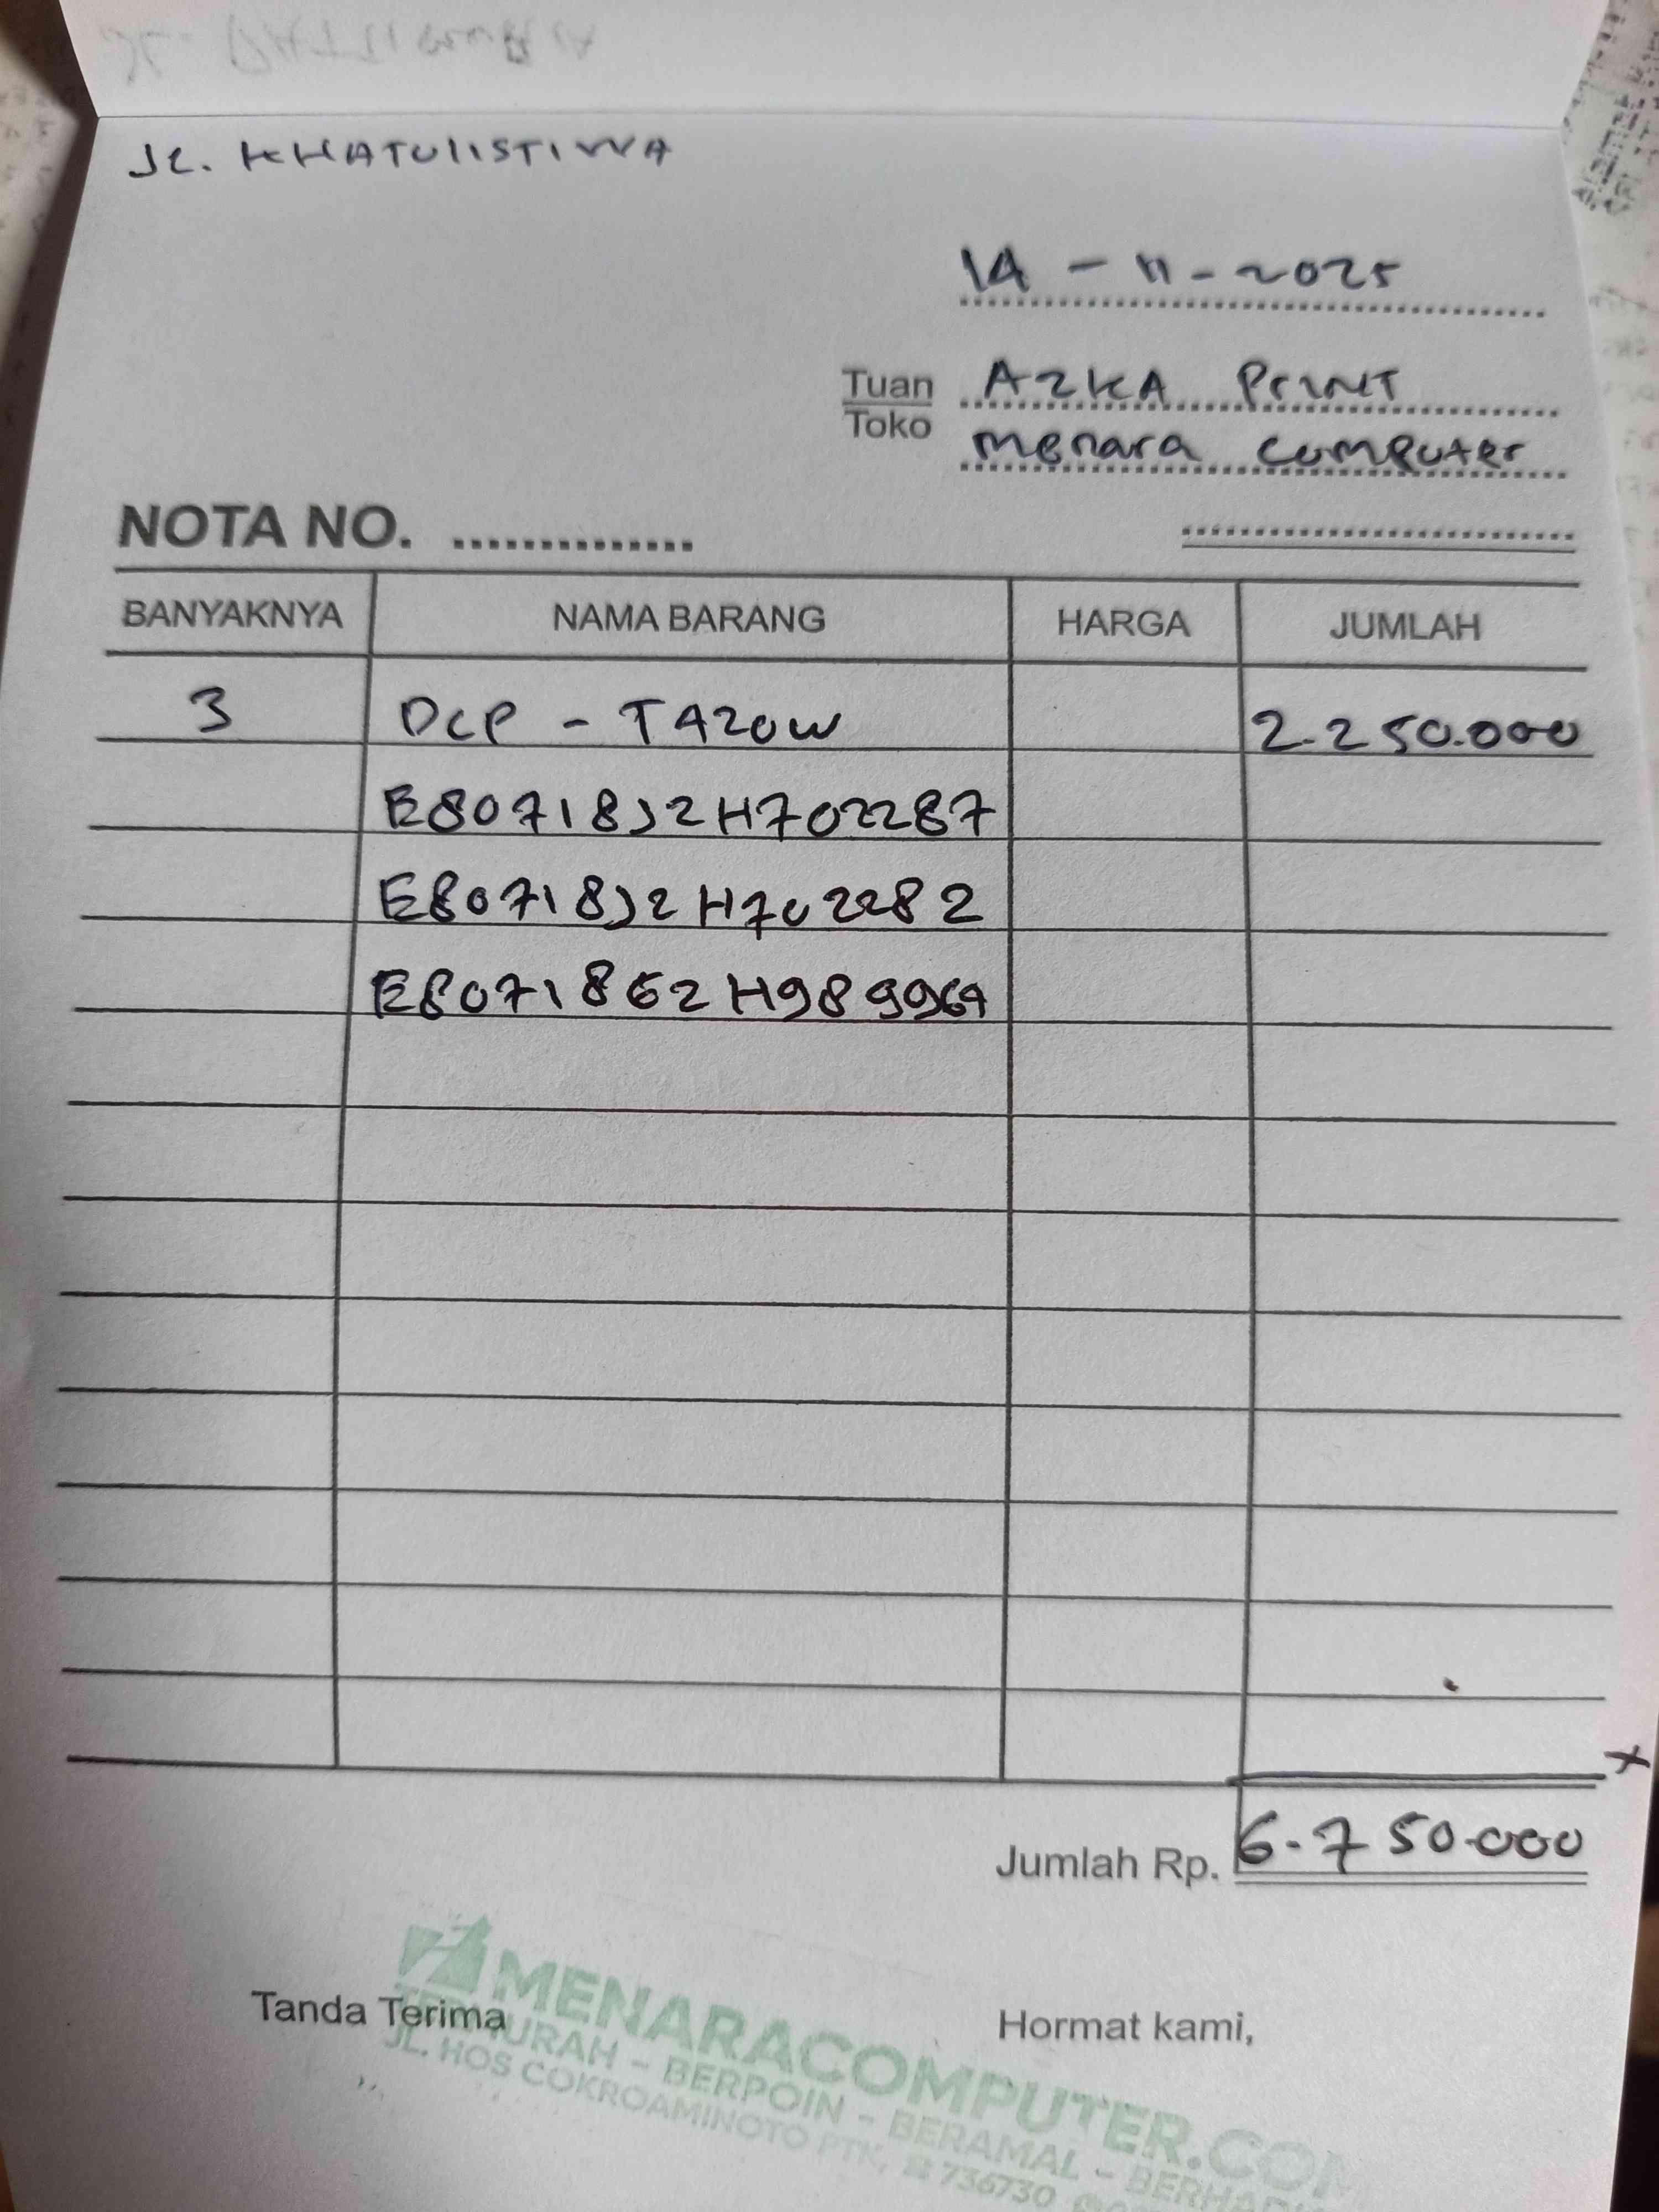 JL. KHATULISTIWA
14 - 11 - 2025
Tuan AZKA Print
Toko menara computer
NOTA NO. ..............
BANYAKNYA NAMA BARANG HARGA JUMLAH
3 DCP - T420W 2.250.000
E80718J2H702287
E80718J2H702282
E80718G2H989969
Jumlah Rp. 6.750.000
Tanda Terima Hormat kami,
MENARACOMPUTER.COM
MURAH - BERPOIN - BERAMAL -
JL. HOS COKROAMINOTO PTK, ☎ 736730